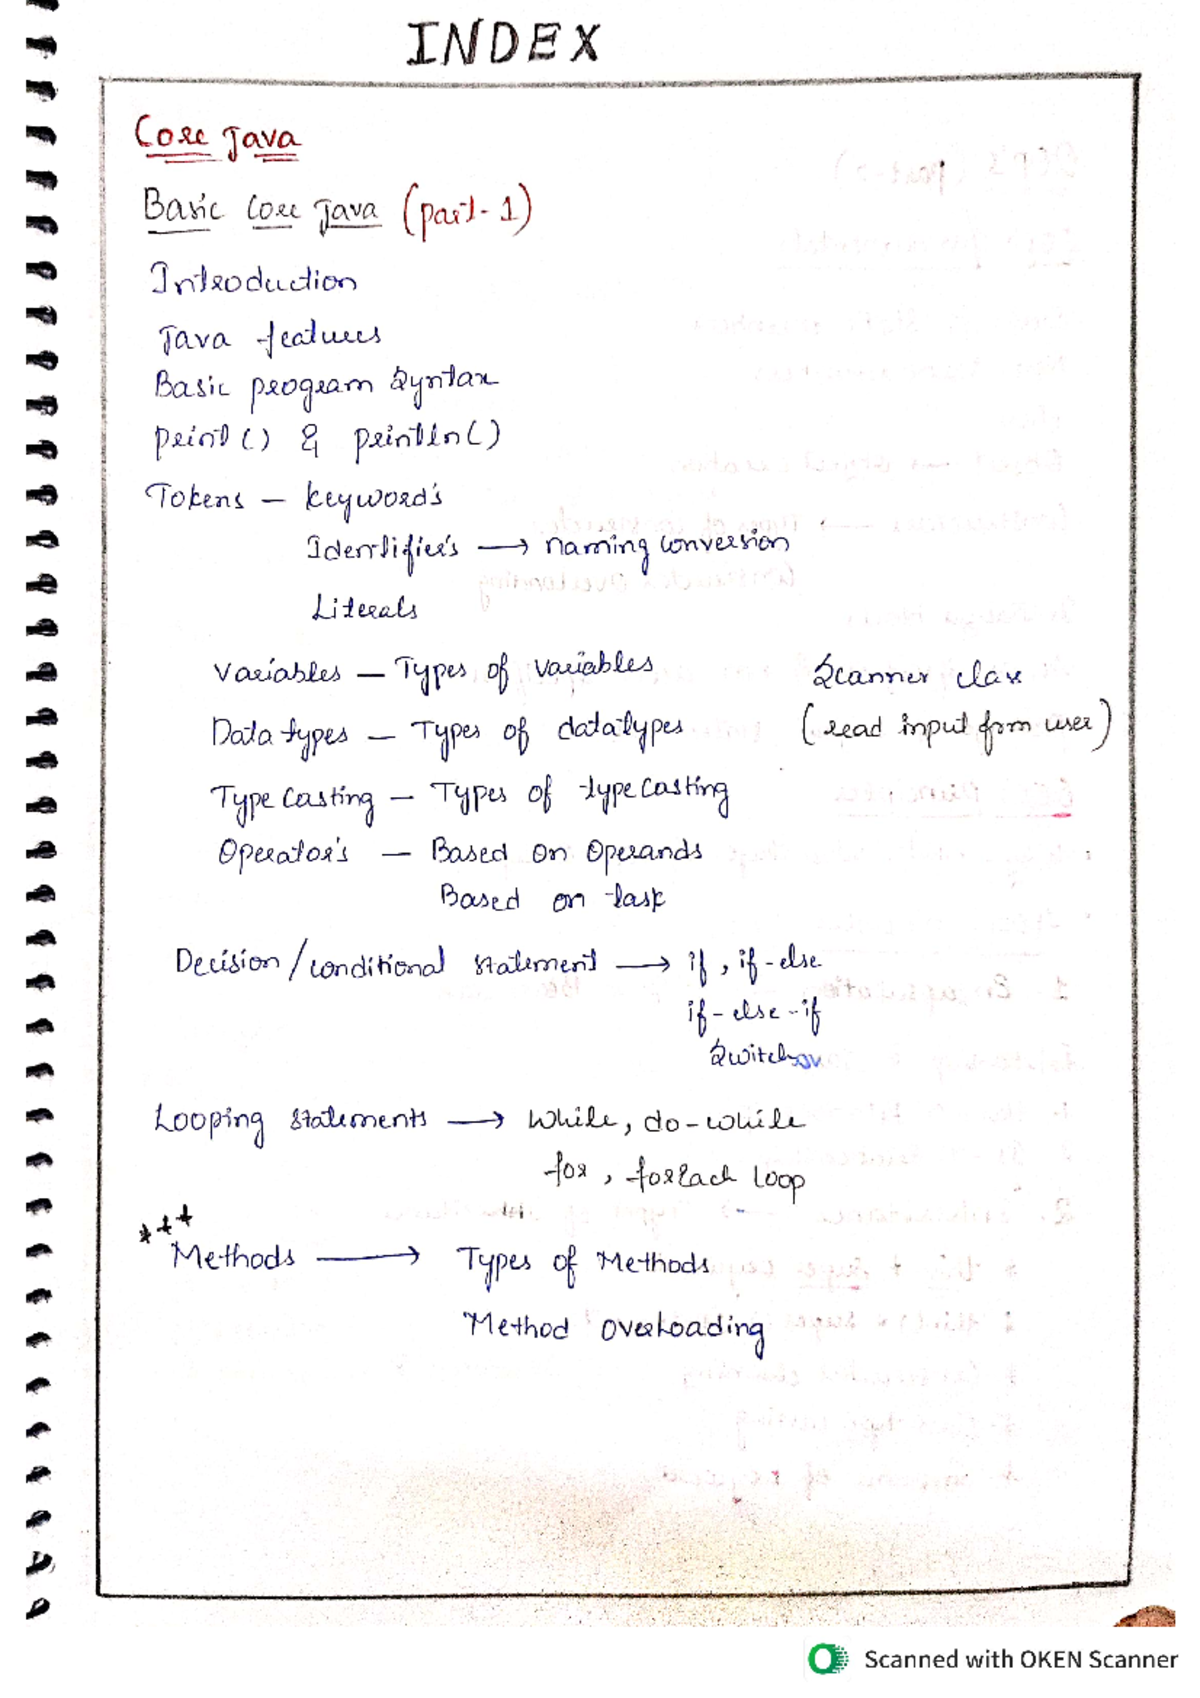 INDEX
Core Java
Basic Core Java (part-1)
Introduction
Java features
Basic program Syntax
print() & println()
Tokens — keyword's
Identifier's → naming conversion
Literals
Variables — Types of variables
Scanner class
Data types — Types of datatypes
(read input from user)
Type Casting — Types of typecasting
Operator's — Based on Operands
Based on task
Decision/conditional statement → if, if-else
if-else-if
Switch
Looping statements → while, do-while
for, forEach loop
***
Methods → Types of Methods
Method overloading
Scanned with OKEN Scanner